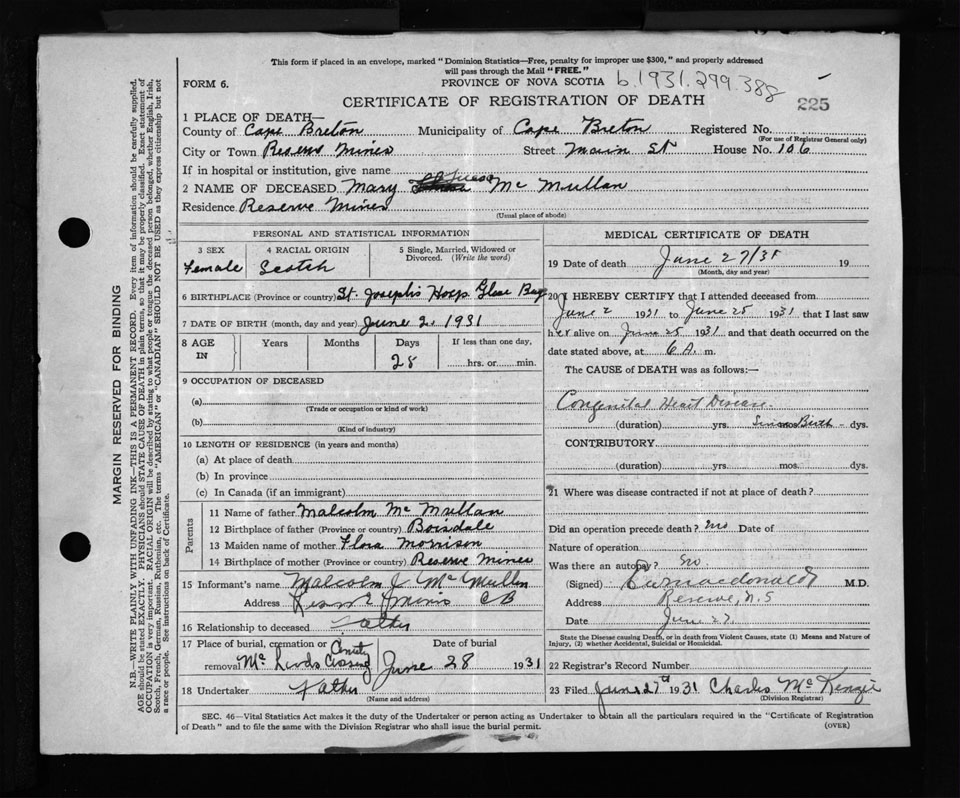 This form if placed in an envelope, marked "Dominion Statistics—Free, penalty for improper use $300," and properly addressed
will pass through the Mail "FREE."
FORM 6.
PROVINCE OF NOVA SCOTIA
b.1931.299.388
CERTIFICATE OF REGISTRATION OF DEATH
225
1 PLACE OF DEATH—
County of Cape Breton Municipality of Cape Breton Registered No.
(For use of Registrar General only)
City or Town Reserve Mines Street Main St House No. 106
If in hospital or institution, give name
2 NAME OF DECEASED Mary Mc Mullan
Residence Reserve Mines
(Usual place of abode)
PERSONAL AND STATISTICAL INFORMATION
3 SEX 4 RACIAL ORIGIN 5 Single, Married, Widowed or Divorced. (Write the word)
Female Scotch
6 BIRTHPLACE (Province or country) St. Joseph's Hosp Glace Bay
7 DATE OF BIRTH (month, day and year) June 2. 1931
8 AGE IN Years Months Days If less than one day,
28 hrs. or min.
9 OCCUPATION OF DECEASED
(a)
(Trade or occupation or kind of work)
(b)
(Kind of industry)
10 LENGTH OF RESIDENCE (in years and months)
(a) At place of death
(b) In province
(c) In Canada (if an immigrant)
Parents
11 Name of father Malcolm Mc Mullan
12 Birthplace of father (Province or country) Boisdale
13 Maiden name of mother Flora Morrison
14 Birthplace of mother (Province or country) Reserve Mines
15 Informant's name Malcolm J. McMullin
Address Reserve Mines CB
16 Relationship to deceased Father
17 Place of burial, cremation or removal Mc Leods Crossing Date of burial June 28 1931
18 Undertaker Father
(Name and address)
MEDICAL CERTIFICATE OF DEATH
19 Date of death June 27/31 19
(Month, day and year)
20 I HEREBY CERTIFY that I attended deceased from
June 2 1931 to June 25 1931 that I last saw
her alive on June 25 1931 and that death occurred on
date stated above, at 6 A. m.
The CAUSE of DEATH was as follows:—
Congenital Heart Disease
(duration) yrs. Birth dys.
CONTRIBUTORY
(duration) yrs. mos. dys.
21 Where was disease contracted if not at place of death?
Did an operation precede death? No Date of
Nature of operation
Was there an autopsy? No
(Signed) M.D.
Address Reserve, N.S
Date June 27.
State the Disease causing Death, or in death from Violent Causes, state (1) Means and Nature of
Injury, (2) whether Accidental, Suicidal or Homicidal.
22 Registrar's Record Number
23 Filed June 27th 1931 Charles Mc Kenzie
(Division Registrar)
SEC. 46—Vital Statistics Act makes it the duty of the Undertaker or person acting as Undertaker to obtain all the particulars required in the "Certificate of Registration
of Death" and to file the same with the Division Registrar who shall issue the burial permit.
(OVER)
MARGIN RESERVED FOR BINDING
N.B.—WRITE PLAINLY WITH UNFADING INK—THIS IS A PERMANENT RECORD. Every item of information should be carefully supplied.
AGE should be stated EXACTLY. PHYSICIANS should STATE CAUSE OF DEATH in plain terms, so that it may be properly classified. Exact statement of
OCCUPATION is very important. RACIAL ORIGIN will be described by stating to what people or tongue the deceased person belonged, whether English, Irish,
Scotch, French, German, Russian, Ruthenian, etc. The terms "AMERICAN" or "CANADIAN" SHOULD NOT BE USED as they express citizenship but not
a race or people. See instructions on back of Certificate.